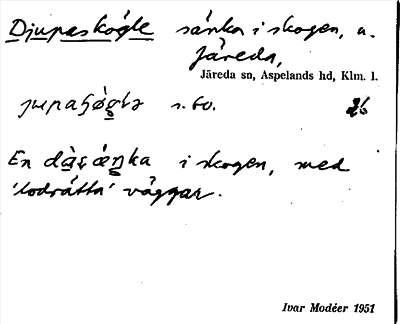 Djupaskógle sánka i skogen, a.
Järeda,
Järeda sn, Aspelands hd, Klm. l.
s. bo.
En i skogen, med
'lodrätta' väggar.
Ivar Modéer 1951